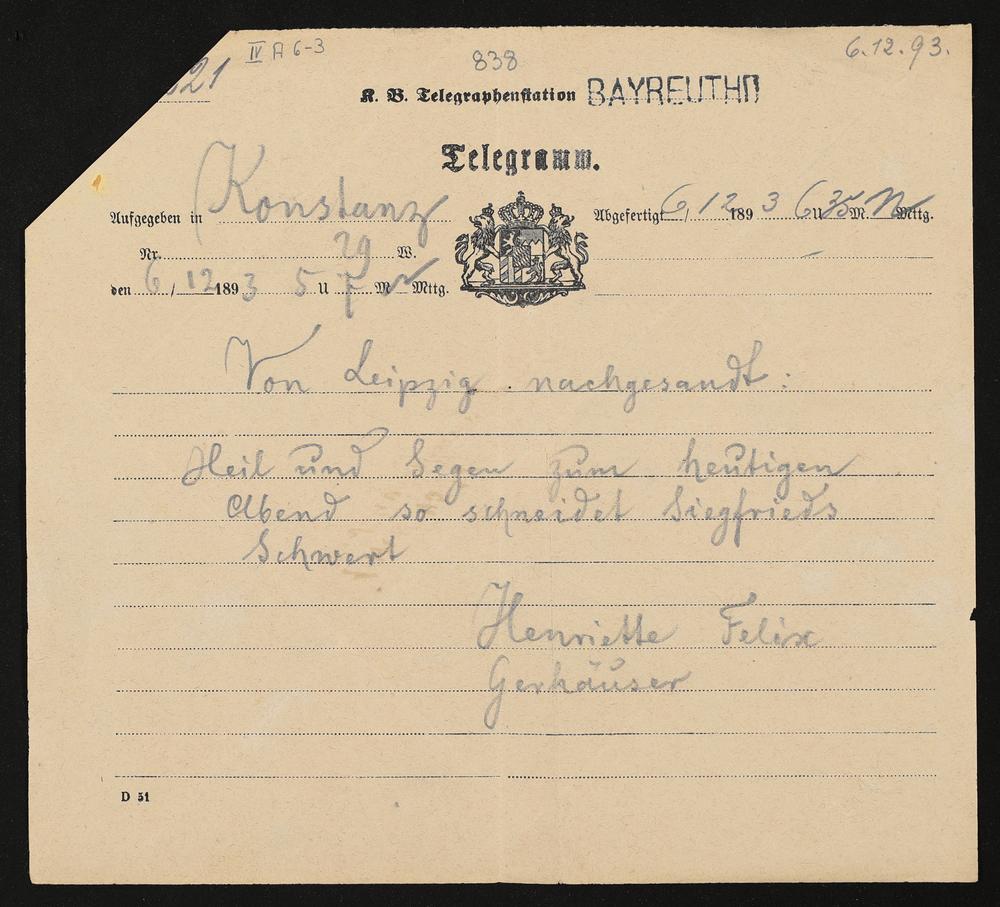 21
IV A 6-3
838
6.12.93.
K. B. Telegraphenstation BAYREUTH
Telegramm.
Aufgegeben in Konstanz
Abgefertigt 6/12 1893 6 U 35 M. N Mttg.
Nr. 29 W.
den 6/12 1893 5 U 7 M N Mttg.
Von Leipzig nachgesandt:
Heil und Segen zum heutigen
Abend so schneidet Siegfrieds
Schwert
Henriette Felix
Gerhäuser
D 51